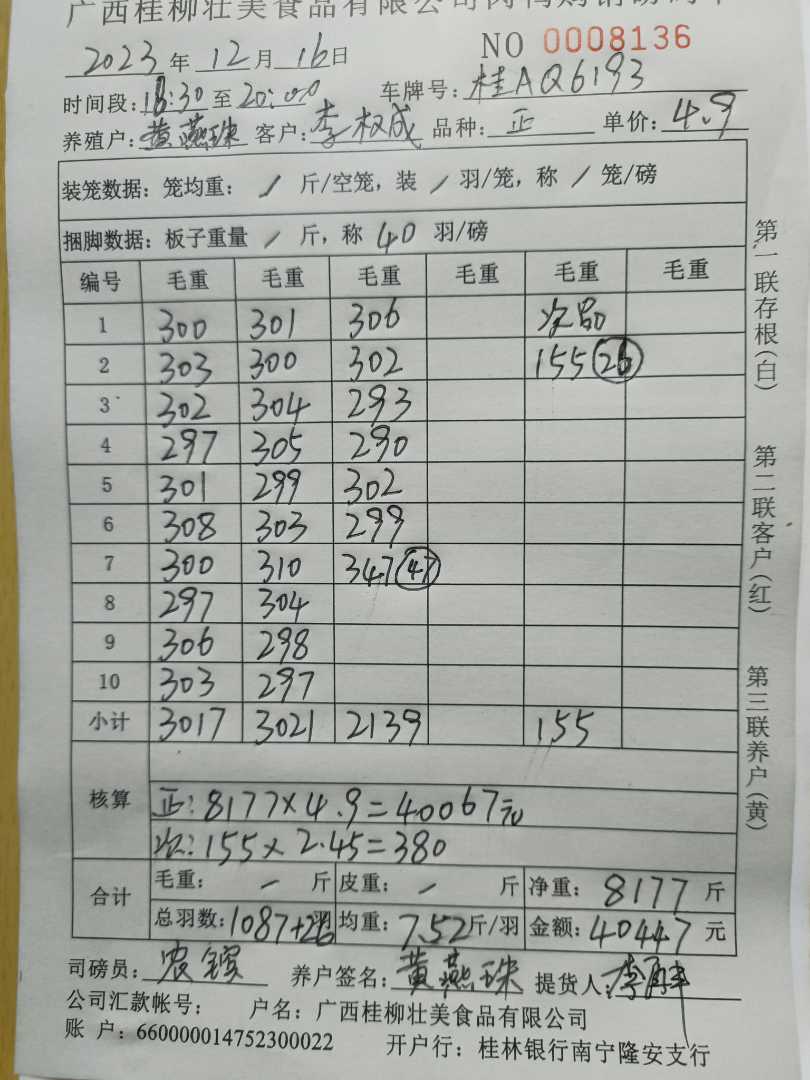 广西桂柳壮美食品有限公司肉鸭购销磅码单
2023 年 12 月 16 日 NO 0008136
时间段: 18:30 至 20:00 车牌号: 桂AQ6193
养殖户: 黄燕珠 客户: 李权成 品种: 正 单价: 4.9
装笼数据: 笼均重: / 斤/空笼, 装 / 羽/笼, 称 / 笼/磅
捆脚数据: 板子重量 / 斤, 称 40 羽/磅
编号 毛重 毛重 毛重 毛重 毛重 毛重
1 300 301 306 次品
2 303 300 302 155 26
3 302 304 293
4 297 305 290
5 301 299 302
6 308 303 299
7 300 310 347 47
8 297 304
9 306 298
10 303 297
小计 3017 3021 2139 155
核算
正: 8177×4.9=40067元
次: 155×2.45=380
合计
毛重: - 斤 皮重: - 斤 净重: 8177 斤
总羽数: 1087+26羽 均重: 7.52斤/羽 金额: 40447 元
司磅员: 农 养户签名: 黄燕珠 提货人: 李
公司汇款帐号: 户名: 广西桂柳壮美食品有限公司
账 户: 660000014752300022 开户行: 桂林银行南宁隆安支行
第一联存根(白) 第二联客户(红) 第三联养户(黄)